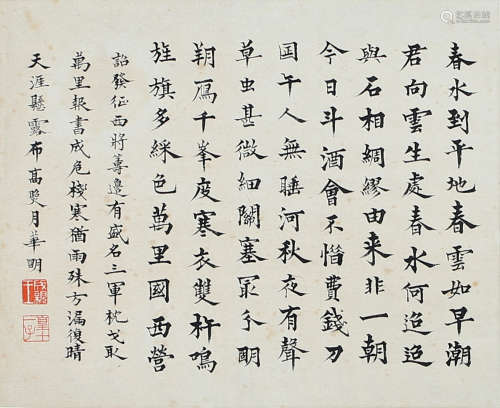 春水到平地春雲如早潮
君向雲生處春水何迢迢
與石相綢繆由来非一朝
今日斗酒會不惜費錢刀
国午人無睡河秋夜有聲
草虫甚微細關塞冣分明
翔鴈千峯度寒衣雙杵鳴
旌旗多綵色萬里國西營
詔發征西將籌邊有盛名三軍枕戈臥
萬里報書成危棧寒猶雨殊方漏復晴
天涯懸露布高月華明